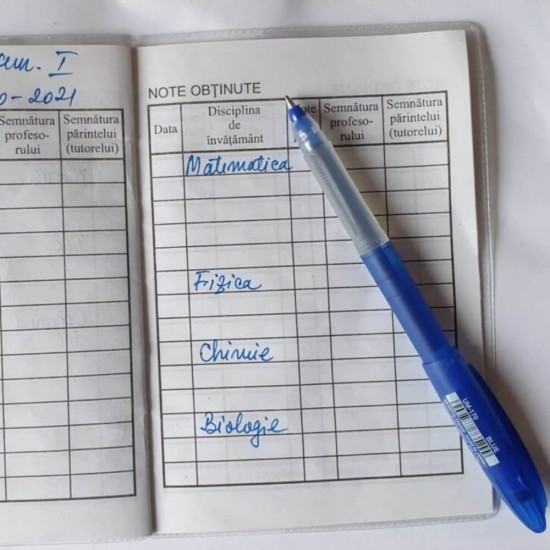 sem. I
0-2021
Semnătura profeso-rului
Semnătura părintelui (tutorelui)
NOTE OBȚINUTE
Data
Disciplina
de
învățământ
Note
Semnătura
profeso-
rului
Semnătura
părintelui
(tutorelui)
Matematica
Fizica
Chimie
Biologie
UM-170
BLUE